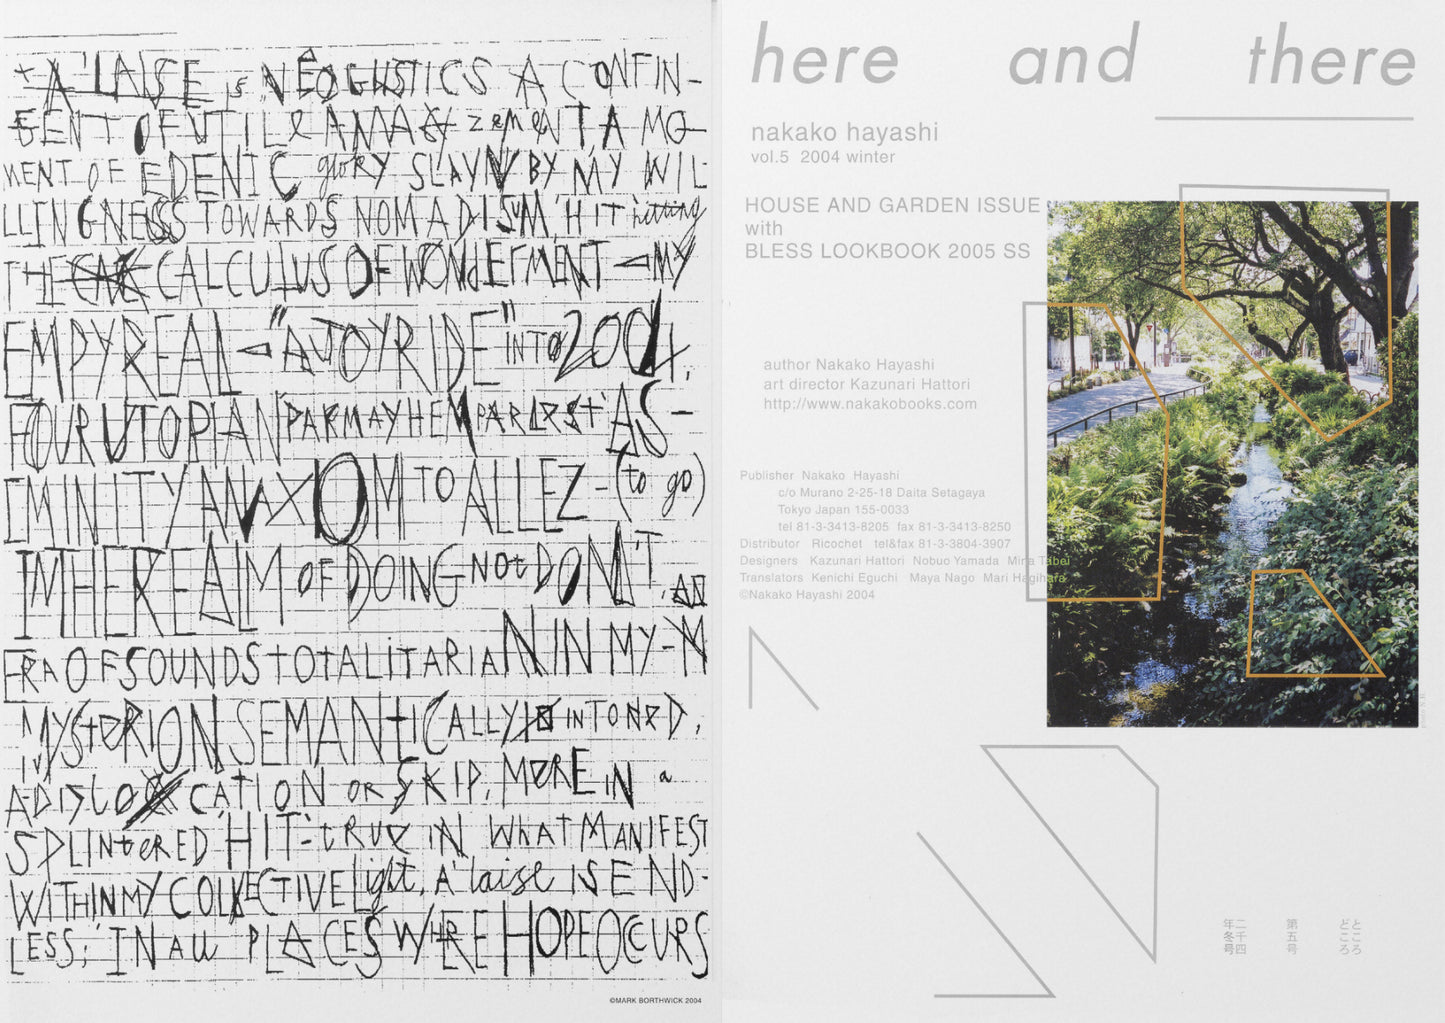 A'LAISE is NEOGUSTICS A CONFIN-
GENT OF UTILE AMAZEMENT, A MO-
MENT OF EDENIC glORY SLAYN BY MY WIL
LLINGNESS TOWARDS NOMADISM 'HIT hitting
THE CALCULUS OF WONdERMENT – MY
EMPYREAL – "A JOYRIDE" INTO 2004,
FOUR UTOPIAN PARMAYHEM PAR LEST AS-
EMINITY AN AXIOM TO ALLEZ – (to go)
IN THE REALM OF DOING NOT DON'T. AN
ERA OF SOUNDS TOTALITARIAN IN MY – M
MYSTERION SEMANTICALLY INTONED,
A DISLOCATION OR SKIP, MORE IN a
SPLINTERED HIT – TRUE IN WHAT MANIFEST
WITHIN MY COLLECTIVE Light, A'laise IS END-
LESS; IN All PLACES WHERE HOPE OCCURS
©MARK BORTHWICK 2004
here and there
nakako hayashi
vol.5 2004 winter
HOUSE AND GARDEN ISSUE
with
BLESS LOOKBOOK 2005 SS
author Nakako Hayashi
art director Kazunari Hattori
http://www.nakakobooks.com
Publisher Nakako Hayashi
c/o Murano 2-25-18 Daita Setagaya
Tokyo Japan 155-0033
tel 81-3-3413-8205 fax 81-3-3413-8250
Distributor Ricochet tel&fax 81-3-3804-3907
Designers Kazunari Hattori Nobuo Yamada Mina Tabei
Translators Kenichi Eguchi Maya Nago Mari Hagihara
©Nakako Hayashi 2004
ところ
どころ
第五号
二千四
年冬号